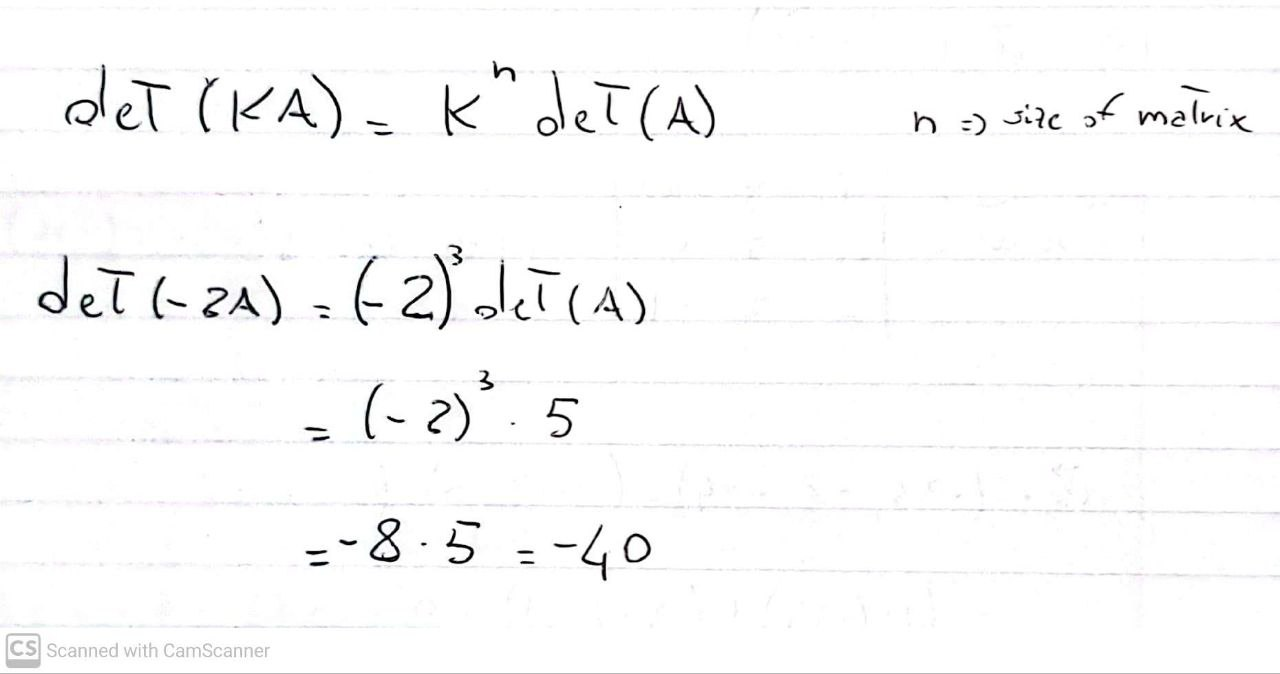 det (KA) = K^n det(A) n => size of matrix
det (-2A) = (-2)^3 det(A)
= (-2)^3 . 5
= -8 . 5 = -40
CS Scanned with CamScanner